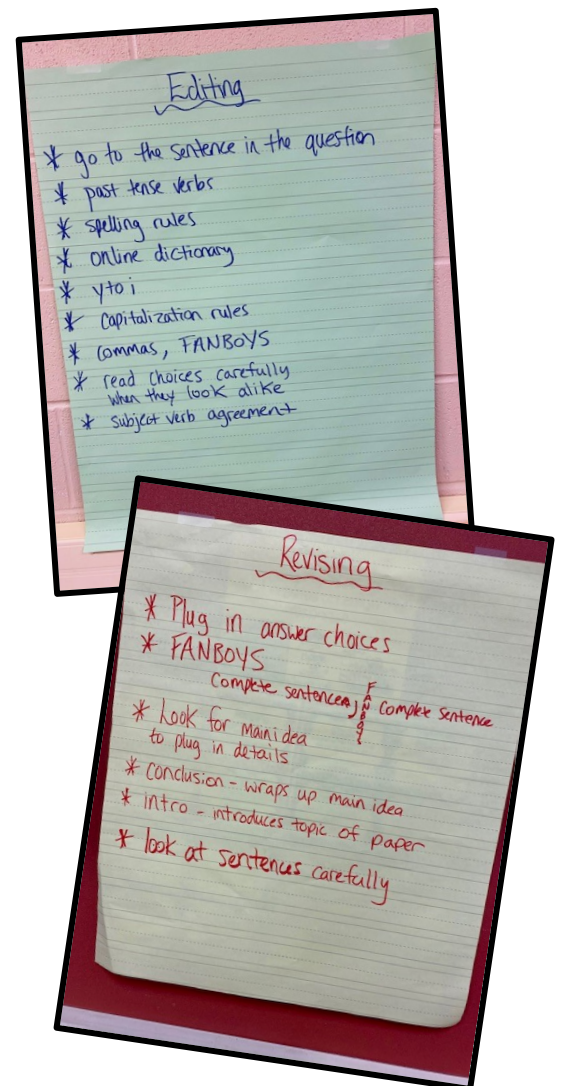 Editing
* go to the sentence in the question
* past tense verbs
* spelling rules
* online dictionary
* y to i
* Capitalization rules
* Commas, FANBOYS
* read choices carefully
when they look alike
* subject verb agreement
Revising
* Plug in answer choices
* FANBOYS
Complete sentence, FANBOYS Complete Sentence
* Look for main idea
to plug in details
* conclusion - wraps up main idea
* intro - introduces topic of paper
* look at sentences carefully